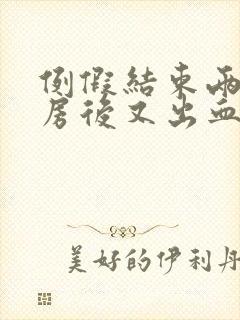 例假結束兩
居後又出血
美好的伊利丹